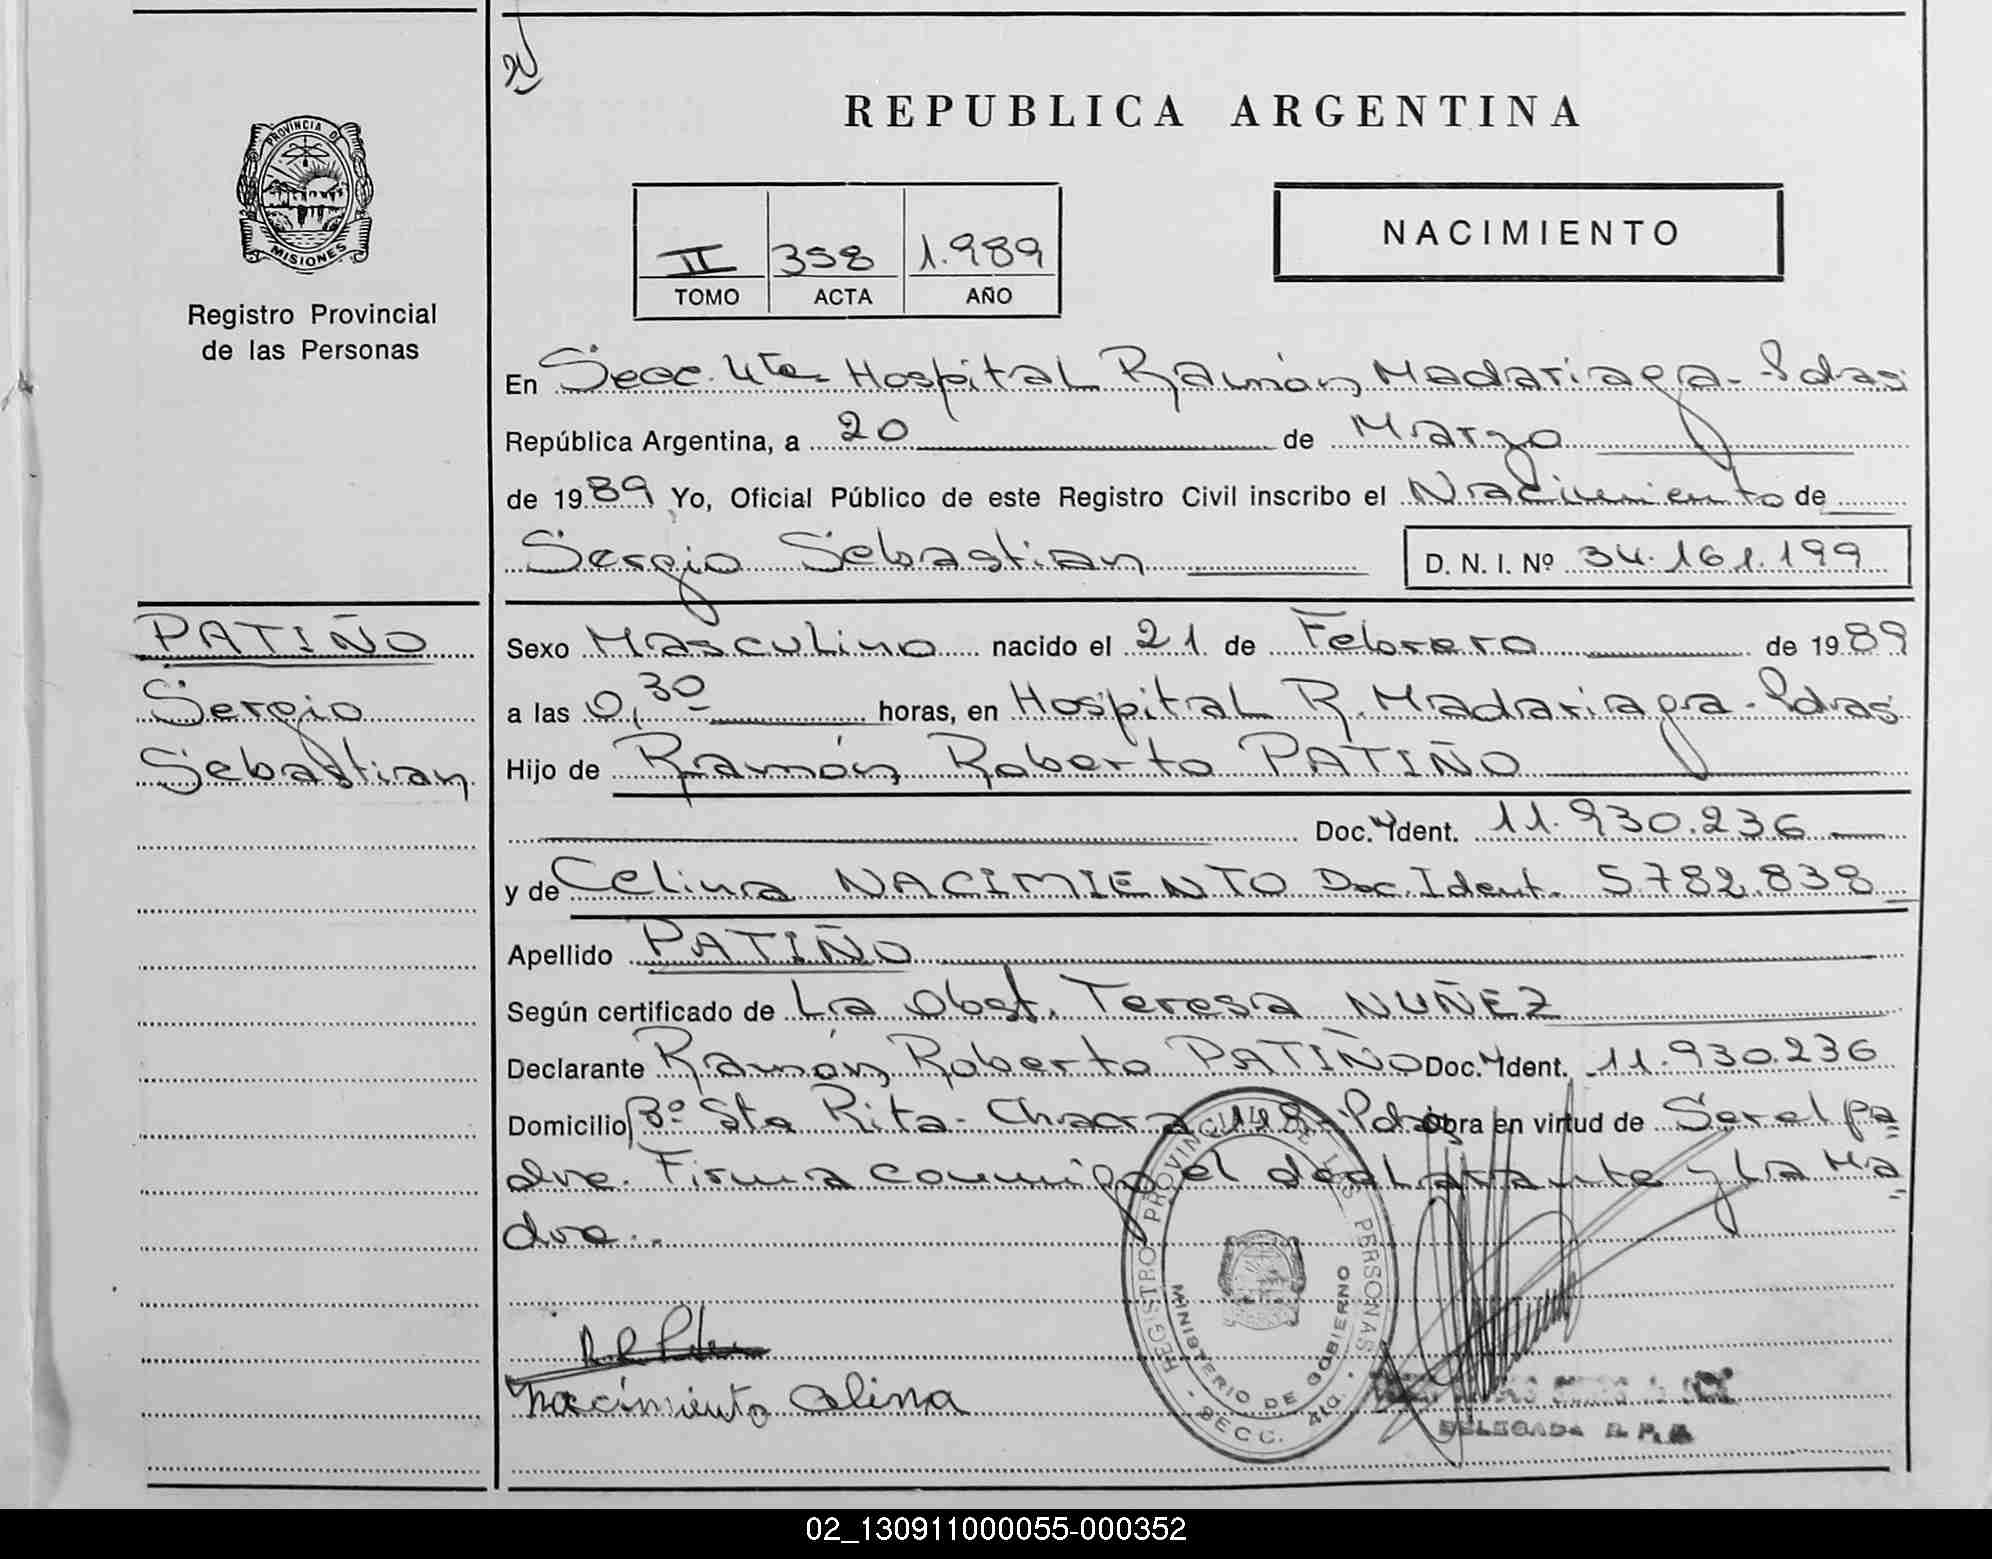 REPUBLICA ARGENTINA
PROVINCIA DE
MISIONES
Registro Provincial
de las Personas
II 358 1.989
TOMO ACTA AÑO
NACIMIENTO
En Secc. 4ta. Hospital Ramón Madariaga - Pdas
República Argentina, a 20 de Marzo
de 1989 Yo, Oficial Público de este Registro Civil inscribo el Nacimiento de
Sergio Sebastian D. N. I. Nº 34.161.199
PATIÑO
Sergio
Sebastian
Sexo Masculino nacido el 21 de Febrero de 1989
a las 0,30 horas, en Hospital R. Madariaga - Pdas
Hijo de Ramón Roberto PATIÑO
Doc. Ident. 11.930.236
y de Celina NACIMIENTO Doc. Ident. 5.782.838
Apellido PATIÑO
Según certificado de La Obst. Teresa NUÑEZ
Declarante Ramón Roberto PATIÑO Doc. Ident. 11.930.236
Domicilio Bº Sta Rita - Chacra 118 - Pdas Obra en virtud de Ser el pa
dre. Firma conmigo el declarante y la Ma
dre..
REGISTRO PROVINCIAL DE LAS PERSONAS
MINISTERIO DE GOBIERNO
SECC. 4ta.
Nacimiento Celina
DELEGADA R. P. P.
02_130911000055-000352